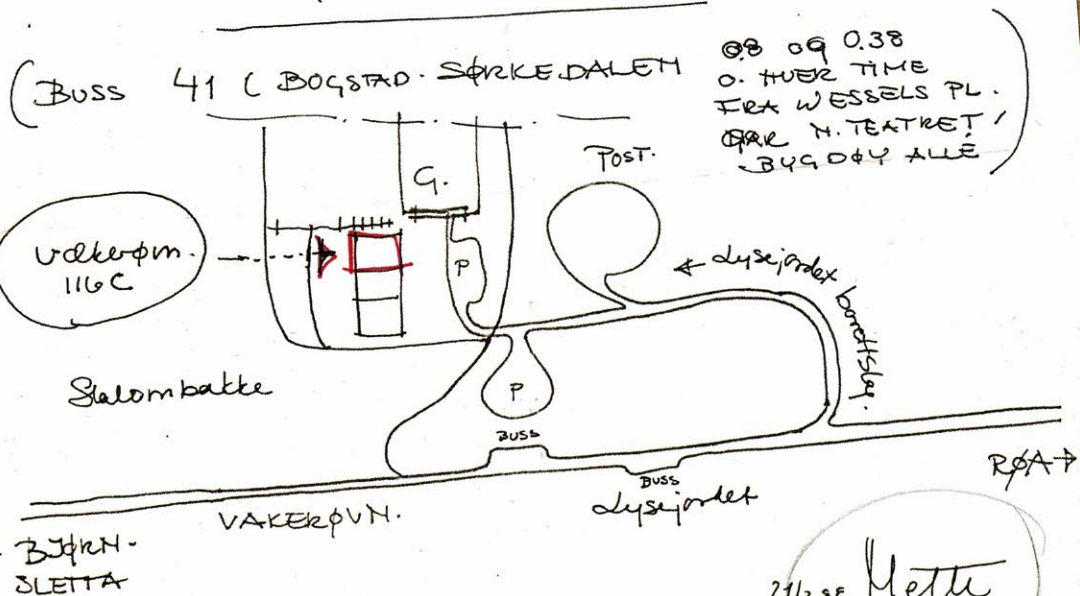 (BUSS 41 ( BOGSTAD · SØRKEDALEN
08 og 0.38
O. HVER TIME
FRA WESSELS PL.
N. TEATRET /
BYGDØY ALLÉ)
POST.
G.
Vækerøvn.
116 C
P
← Lysejordet borettslag.
Slalombakke
P
BUSS
BUSS
Lysejordet
RØA→
VÆKERØVN.
BJØRN-
SLETTA
Mette